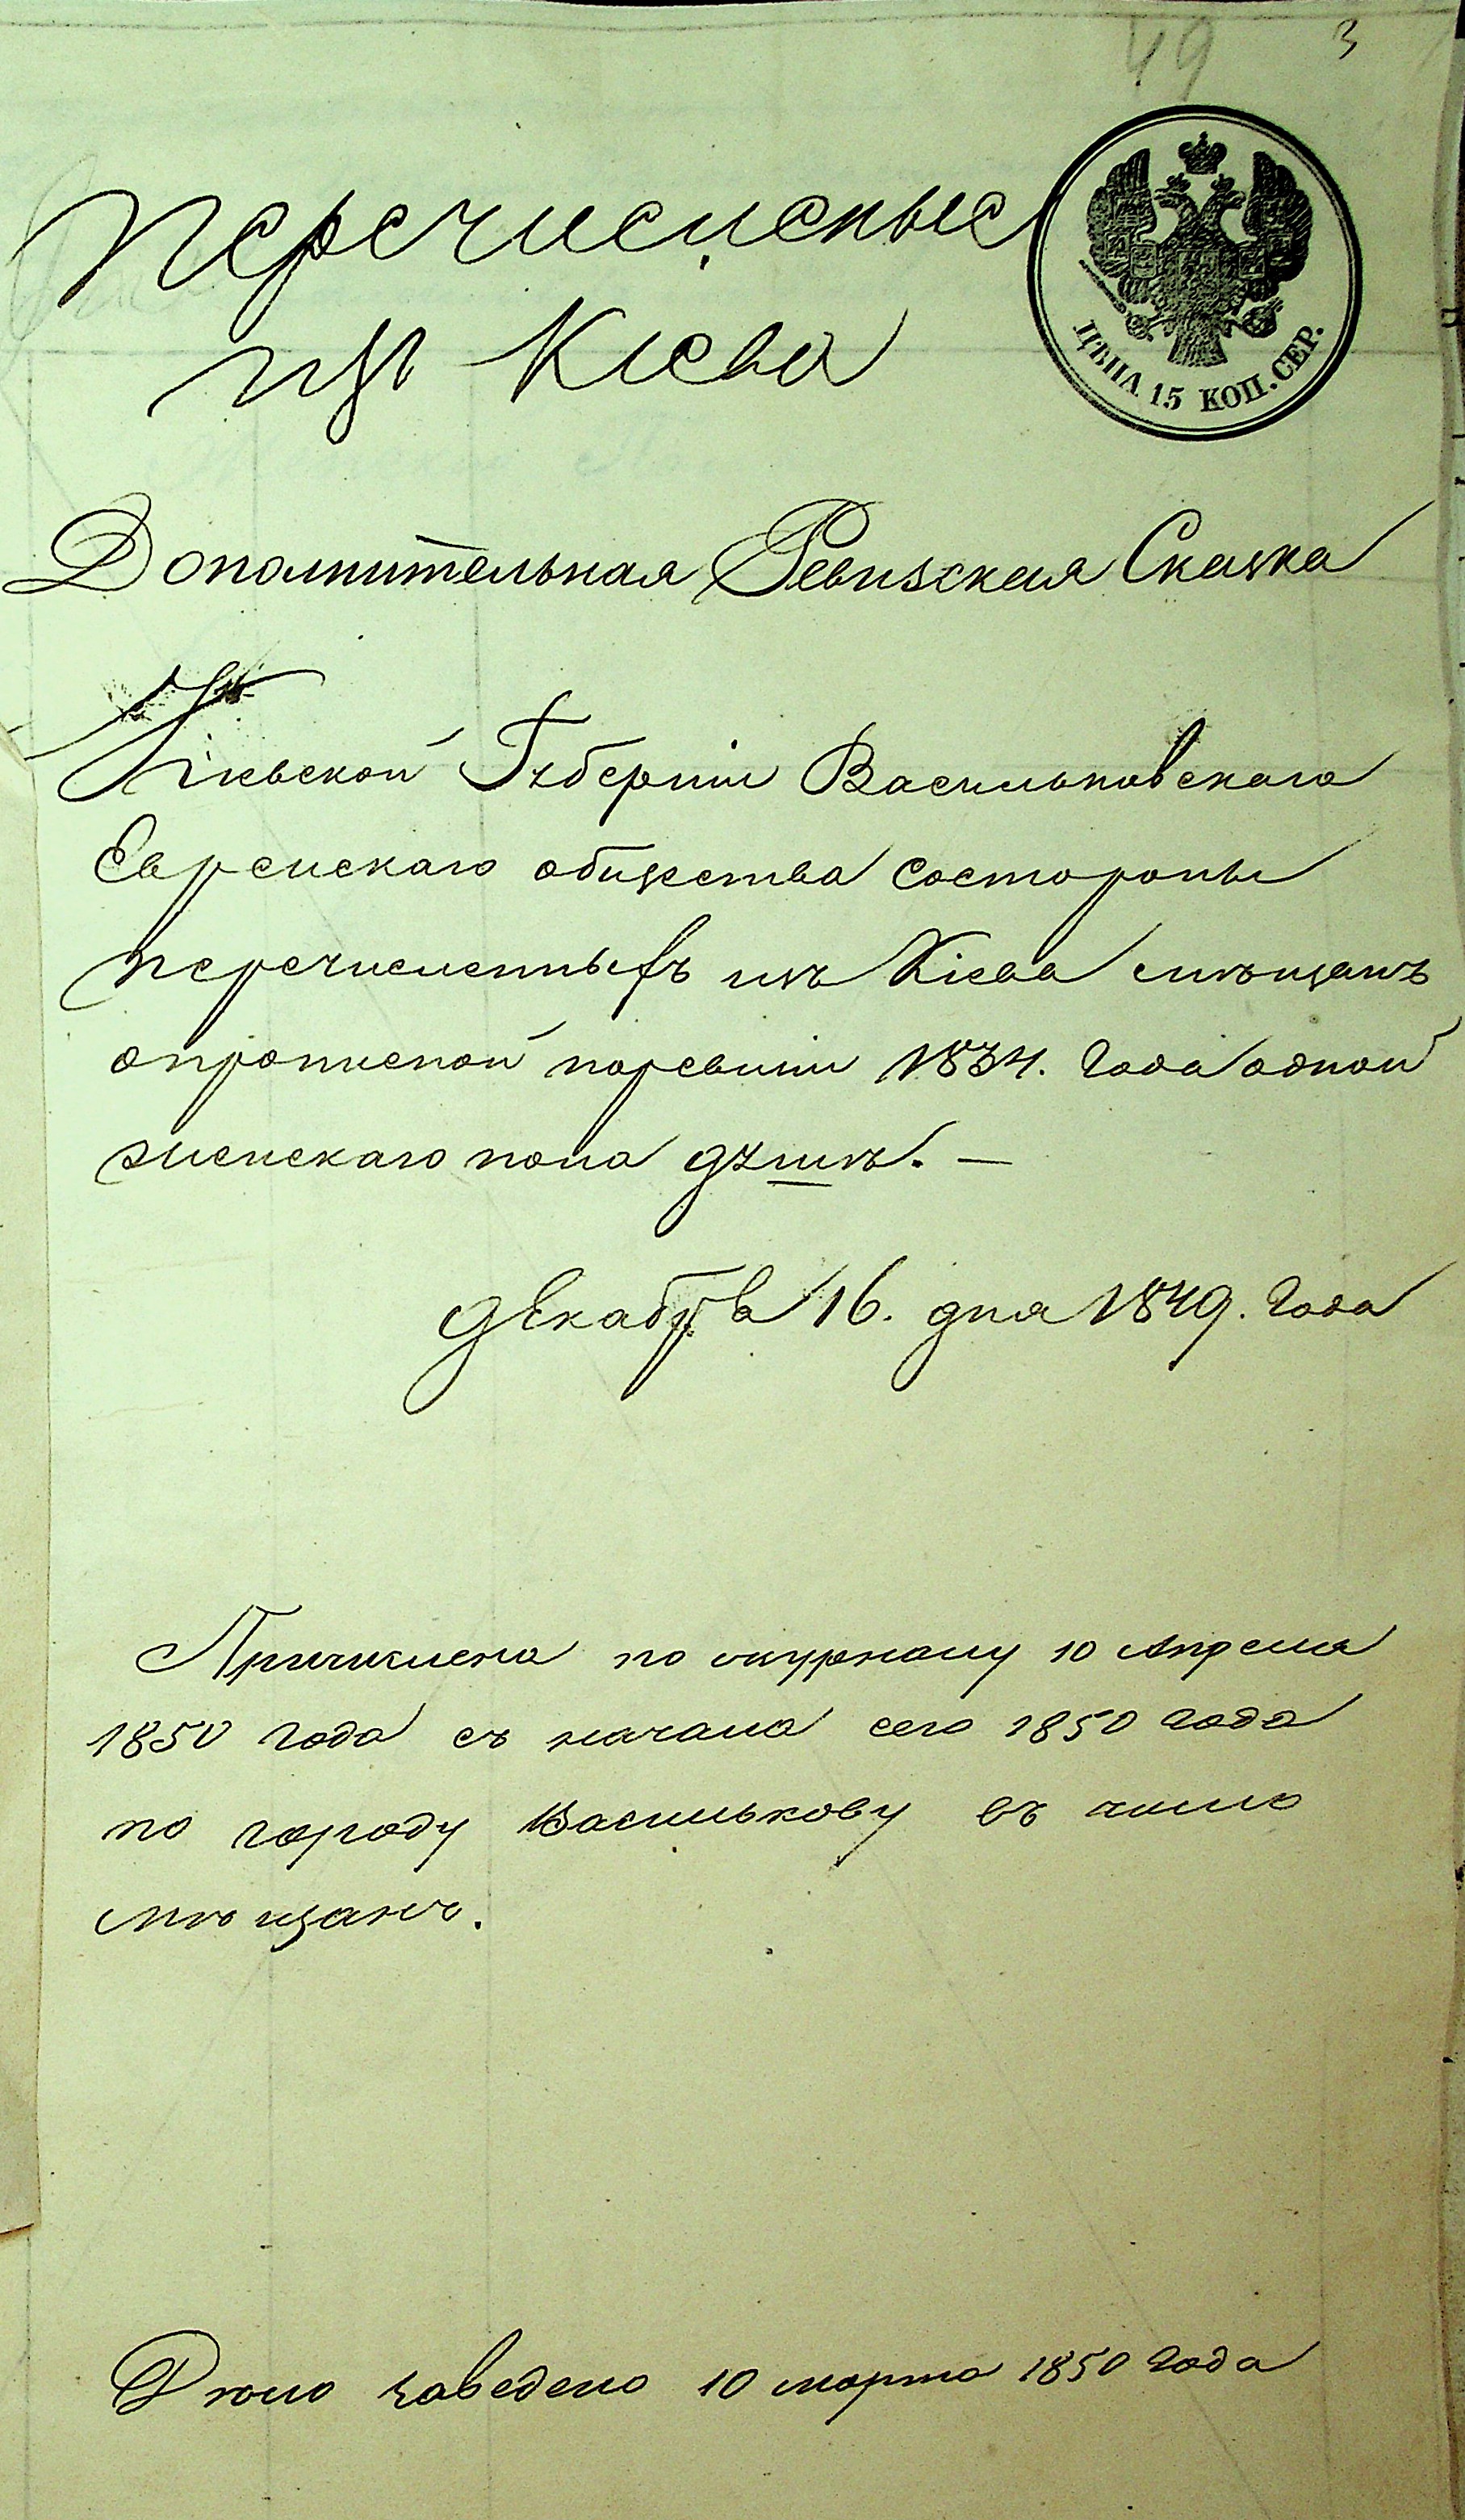 49 3
Перечисленые
изъ Кіева
ЦѢНА 15 КОП. СЕР.
Дополнительная Ревизская Сказка
Кіевской Губерніи Васильковскаго
Еврейскаго общества состороны
перечисленныхъ изъ Кіева мѣщанъ
опрописной поревизіи 1834. года одной
женскаго пола душѣ. —
Декабря 16. дня 1849. года
Причислена по окружному 10 Апреля
1850 года съ начала сего 1850 года
по городу Василькову въ число
мѣщанъ.
Дѣло заведено 10 марта 1850 года